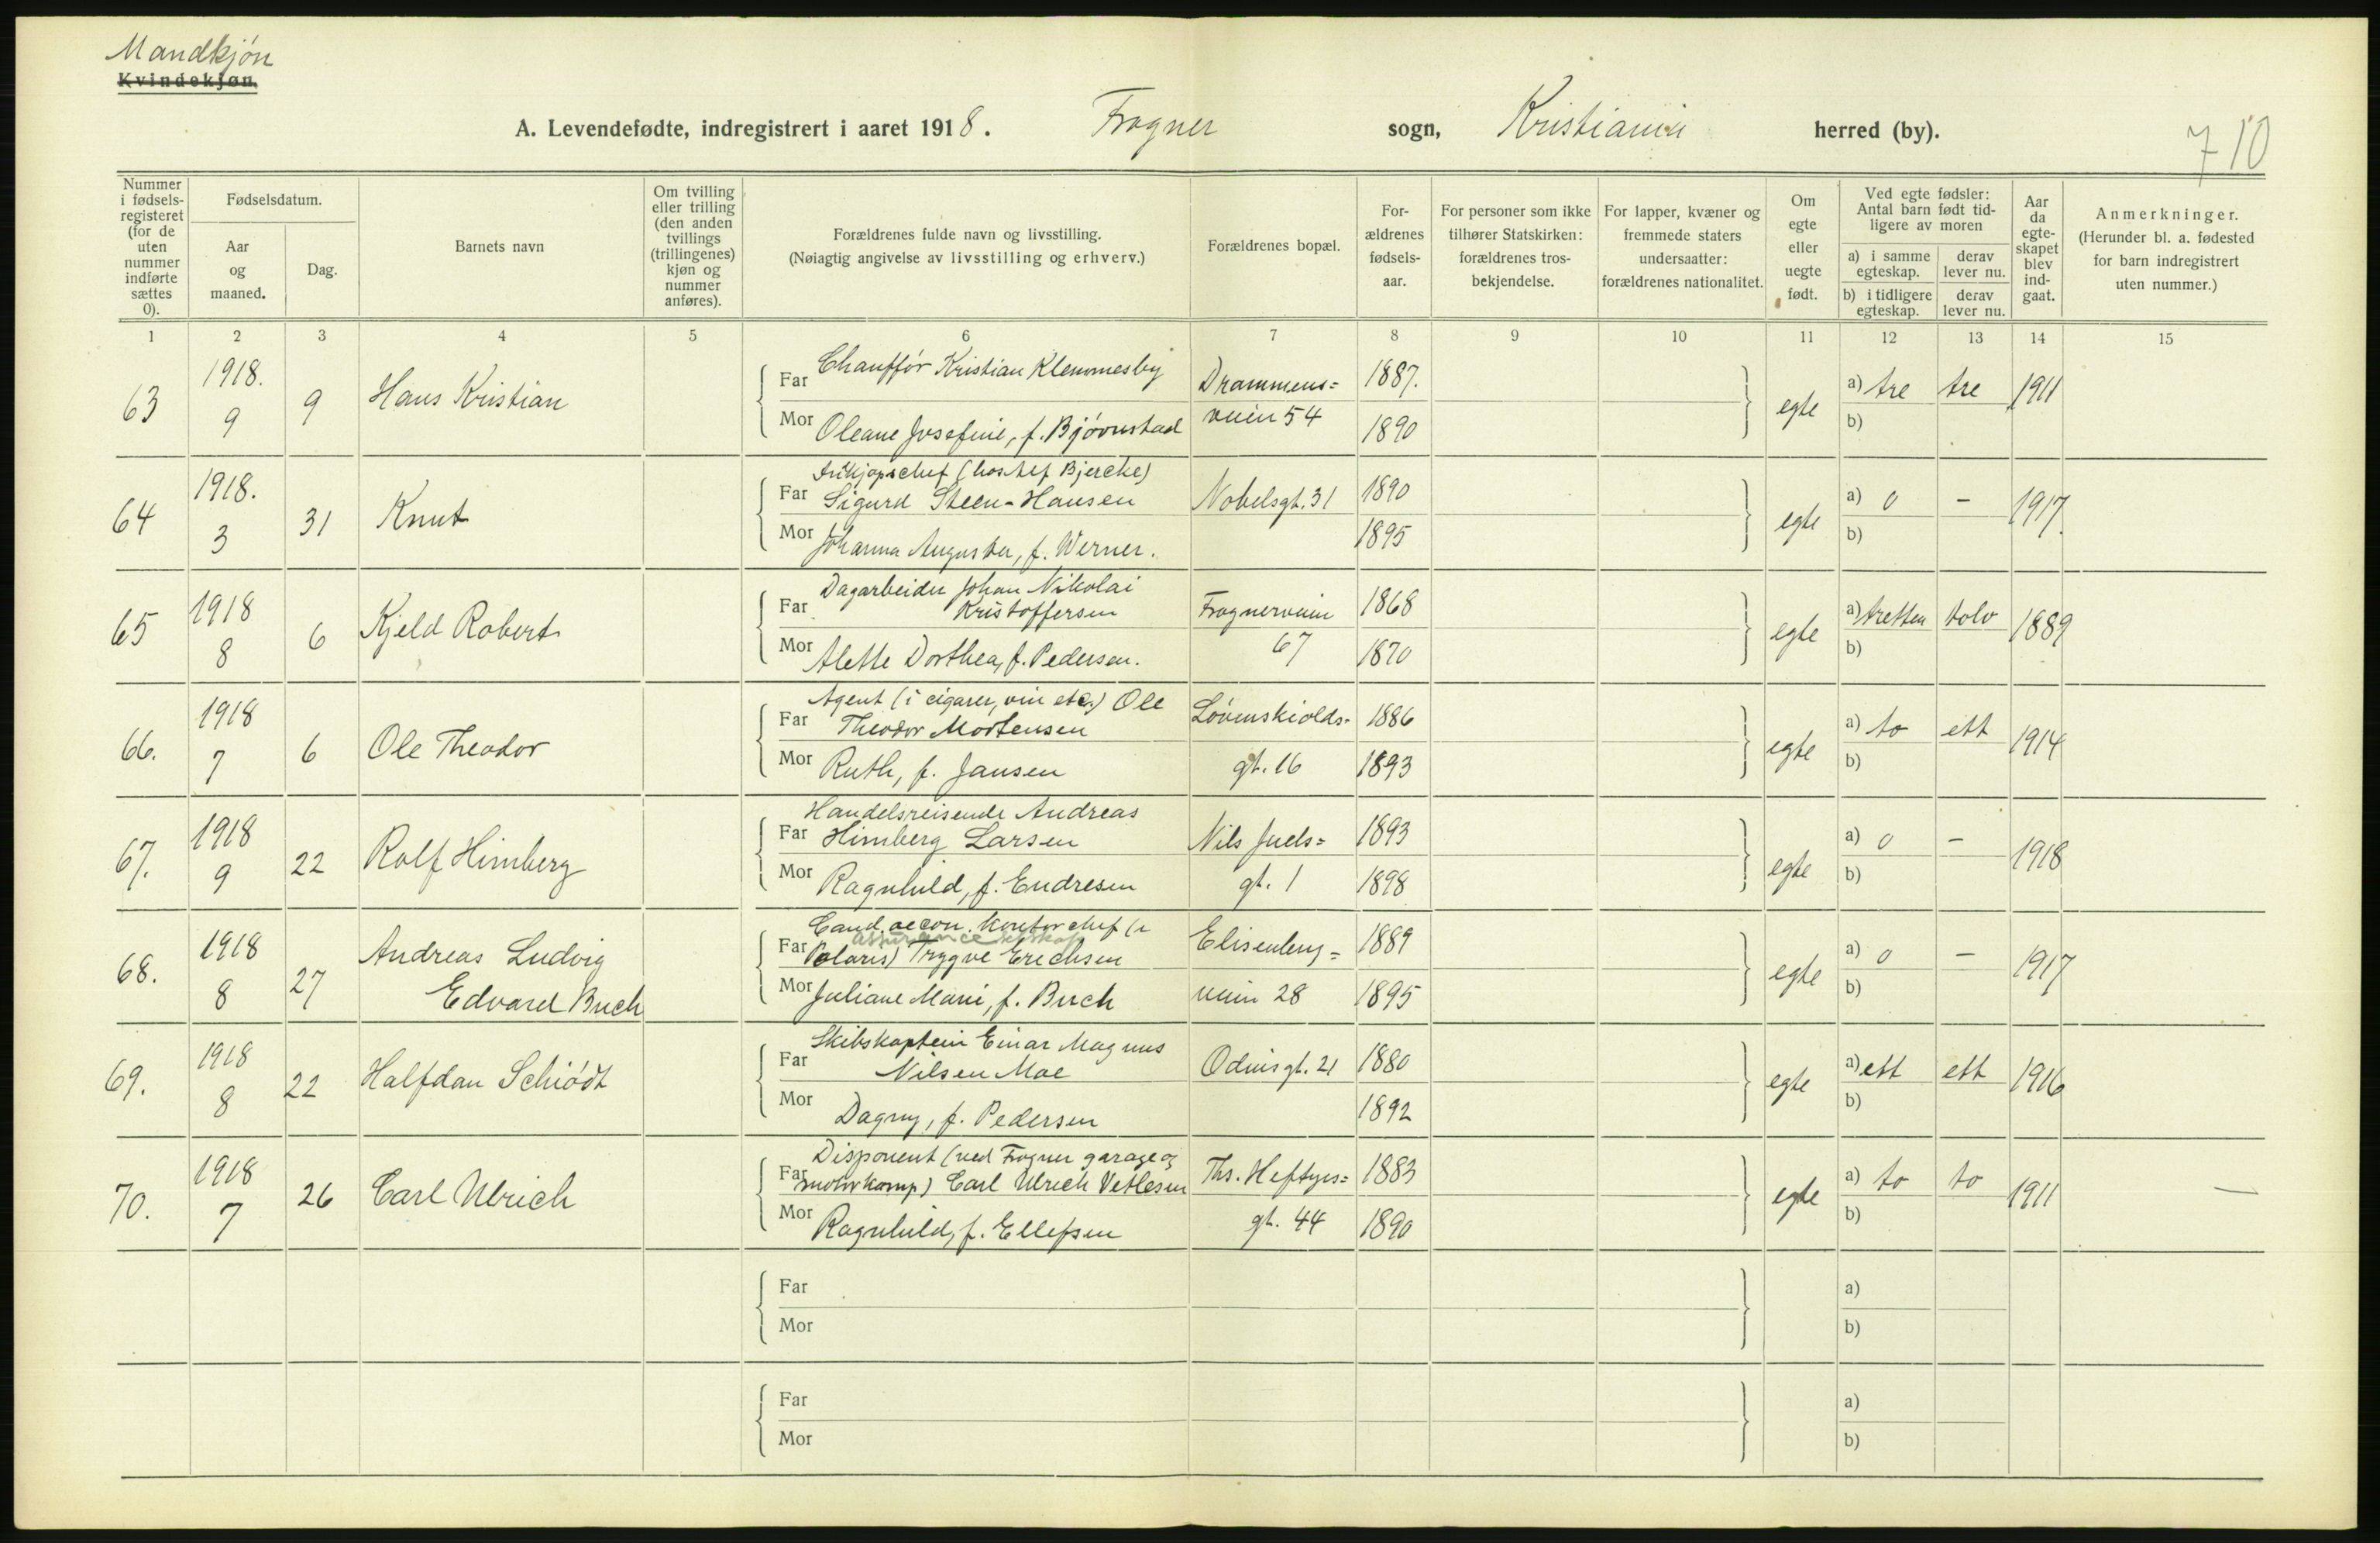 Mandkjøn
Kvindekjøn.
A. Levendefødte, indregistrert i aaret 1918. Frogner sogn, Kristiania herred (by).
710
Nummer i fødsels-registeret (for de uten nummer indførte sættes 0).
Fødselsdatum.
Aar og maaned.
Dag.
Barnets navn
Om tvilling eller trilling (den anden tvillings (trillingenes) kjøn og nummer anføres).
Forældrenes fulde navn og livsstilling.
(Nøiagtig angivelse av livsstilling og erhverv.)
Forældrenes bopæl.
For-ældrenes fødsels-aar.
For personer som ikke tilhører Statskirken: forældrenes tros-bekjendelse.
For lapper, kvæner og fremmede staters undersaatter: forældrenes nationalitet.
Om egte eller uegte født.
Ved egte fødsler: Antal barn født tid-ligere av moren
a) i samme egteskap.
derav lever nu.
b) i tidligere egteskap.
derav lever nu.
Aar da egte-skapet blev ind-gaat.
Anmerkninger.
(Herunder bl. a. fødested for barn indregistrert uten nummer.)
1 2 3 4 5 6 7 8 9 10 11 12 13 14 15
63 1918. 9 9 Hans Kristian
Far Chauffør Kristian Klemmesby Drammens= 1887.
Mor Oleane Josefine, f. Bjørnstad veien 54 1890
egte a) tre tre 1911
b)
64 1918. 3 31 Knut
Indkjøpschef (hos Alf Bjercke)
Far Sigurd Steen-Hansen Nobelsgt. 31 1890
Mor Johanna Augusta, f. Werner. 1895
egte a) 0 - 1917.
b)
65 1918 8 6 Kjeld Robert
Dagarbeider Johan Nikolai
Far Kristoffersen Frognerveien 1868
Mor Alette Dorthea, f. Pedersen. 67 1870
egte a) tretten tolv 1889
b)
66. 1918 7 6 Ole Theodor
Agent (i cigarer, vin etc.) Ole
Far Theodor Mortensen Løvenskiolds- 1886
Mor Ruth, f. Jansen gt. 16 1893
egte a) to ett 1914
b)
67. 1918 9 22 Rolf Himberg
Handelsreisende Andreas
Far Himberg Larsen Nils Juels= 1893
Mor Ragnhild, f. Endresen gt. 1 1898
egte a) 0 - 1918
b)
68. 1918 8 27 Andreas Ludvig
Edvard Buch
Cand. oecon. kontorchef (i
assuranceselskap
Far Polaris) Trygve Erichsen Elisenberg= 1889
Mor Juliane Marie, f. Buch veien 28 1895
egte a) 0 - 1917
b)
69. 1918 8 22 Halfdan Schiødt
Skibskaptein Einar Magnus
Far Nilsen Moe Odinsgt. 21 1880
Mor Dagny, f. Pedersen 1892
egte a) ett ett 1916
b)
70. 1918 7 26 Carl Ulrich
Disponent (ved Frogner garage og
Far motorkomp) Carl Ulrich Vetlesen Ths. Heftyes= 1883
Mor Ragnhild, f. Ellefsen gt. 44 1890
egte a) to to 1911 —
b)
Far a)
Mor b)
Far a)
Mor b)